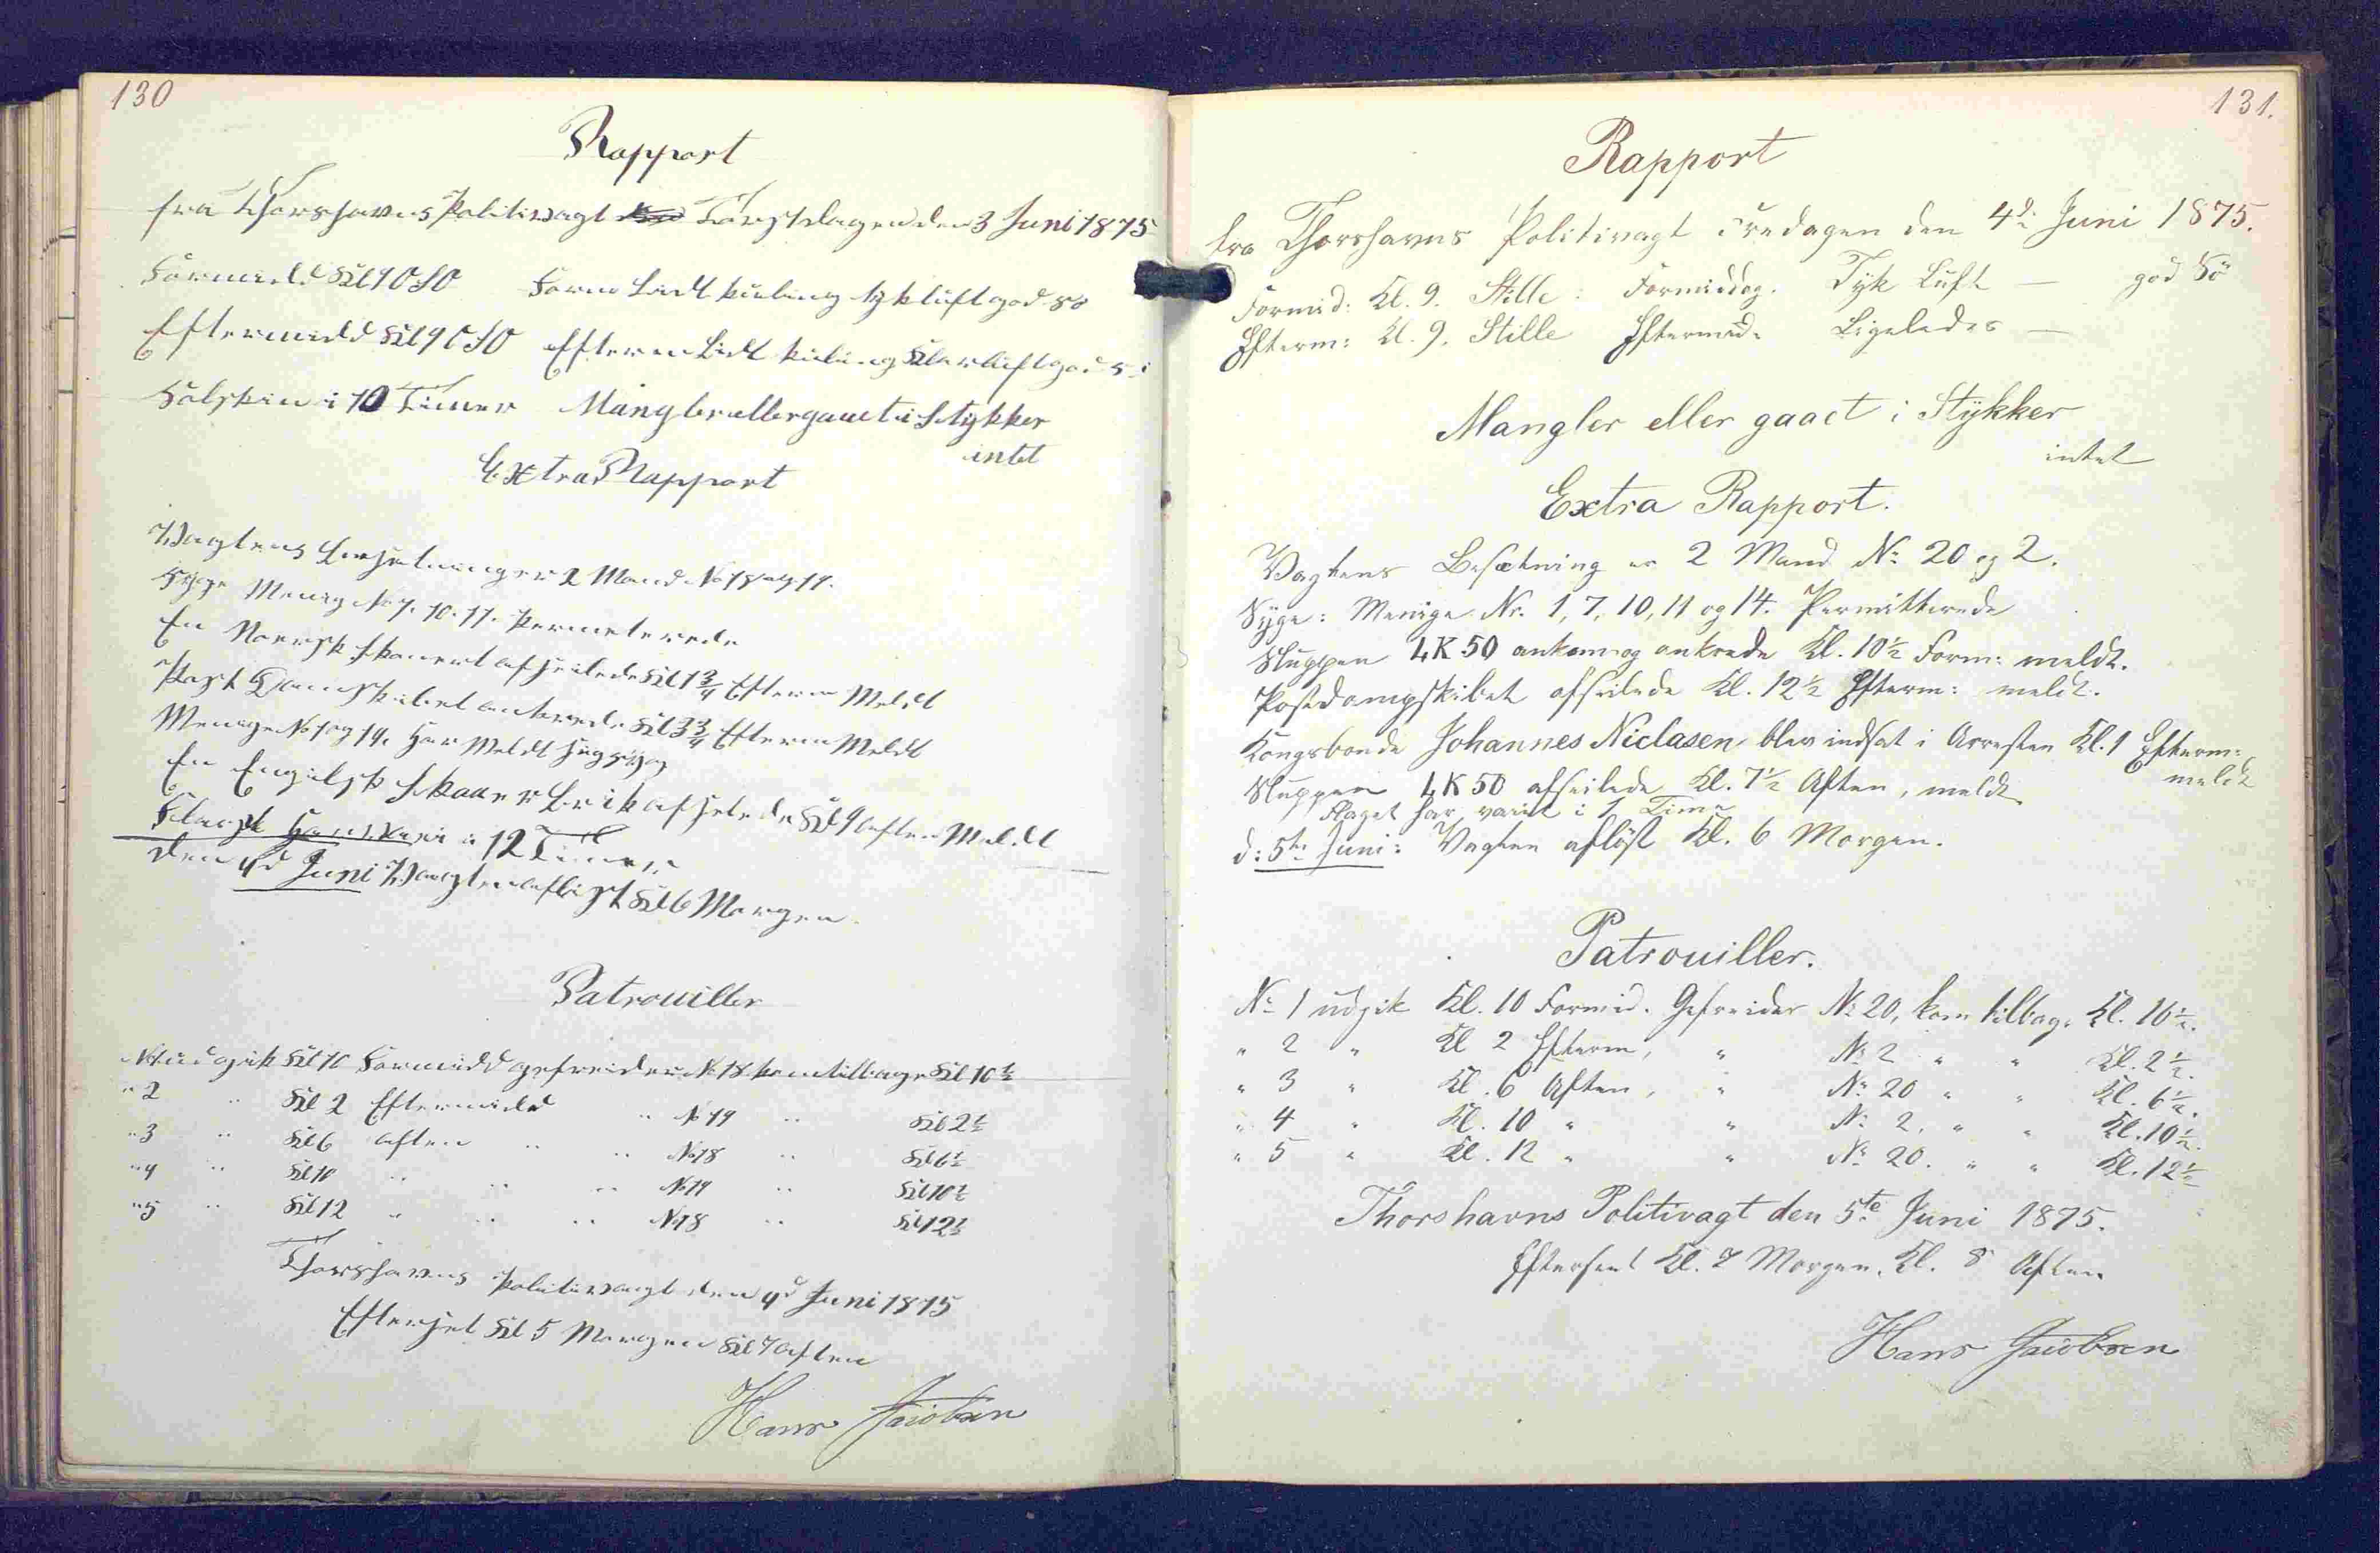 130
Rapport
fra Thorshavns Politivagt Torsdagen den 3 Juni 1875
Formidd Kl 9 OSO Form Lidt kuling tyk luft god sø
Eftermidd Kl 9 OSO Efterm Lidt kuling Klar luft god sø
Solskin i 10 Timer Mangler eller gaaet i Stykker
intet
Extra Rapport
Vagtens Besetning er 2 Mand No 18 og 19.
Syge Menig No 7. 10. 11. Permeterede
En Norsk Skonert afseilede Kl 1 3/4 Efterm Meldt
Post Dampskibet ankrede Kl 3 3/4 Efterm Meldt
Menige No 1 og 14. Har Meldt sig syg
En Engelsk Skonner Brik afselede Kl 9 aften Meldt
Flaget Har varei i 12 Timer
den 4d Juni Vagten afløst Kl 6 Morgen
Patrouiller
No 1 udgik Kl 10 Formidd gefreider No 18 kom tilbage Kl 10 1/2
" 2 " Kl 2 Eftermidd " No 19 " Kl 2 1/2
" 3 " Kl 6 aften " " No 18 " Kl 6 1/2
" 4 " Kl 10 " " " No 19 " Kl 10 1/2
" 5 " Kl 12 " " " No 18 " Kl 12 1/2
Thorshavns Politivagt den 4d Juni 1875
Efterset Kl 5 Morgen Kl 7 aften
Hans Jacobsen
131.
Rapport
fra Thorshavns Politivagt Fredagen den 4d. Juni 1875.
Formid: Kl. 9. Stille: Formiddag. Tyk Luft — god Sø
Efterm: Kl. 9. Stille Eftermid. Ligeledes —
Mangler eller gaaet i Stykker
intet
Extra Rapport.
Vagtens Besætning er 2 Mand No 20 og 2.
Syge: Menige No. 1, 7, 10, 11 og 14. Permitterede
Sluppen LK 50 ankom og ankrede Kl. 10 1/2 Form: meldt.
Postdampskibet afseilede Kl. 12 1/2 Efterm: meldt.
Kongsbonde Johannes Niclasen blev indsat i Arresten Kl. 1 Efterm:
meldt
Sluppen LK 50 afseilede Kl. 7 1/2 Aften, meldt
Flaget har varit i 1 Time
d: 5te Juni: Vagten afløst Kl. 6 Morgen.
Patrouiller.
No 1 udgik Kl. 10 Formid. Gefreider No 20, kom tilbage Kl. 10 1/2.
" 2 " Kl 2 Efterm, " No 2 " " Kl. 2 1/2.
" 3 " Kl. 6 Aften, " No 20 " " Kl. 6 1/2.
" 4 " Kl. 10 " " No 2, " " Kl. 10 1/2.
" 5 " Kl. 12 " " No 20. " " Kl. 12 1/2
Thorshavns Politivagt den 5te Juni 1875.
Efterset Kl. 7 Morgen. Kl. 8 Aften
Hans Jacobsen